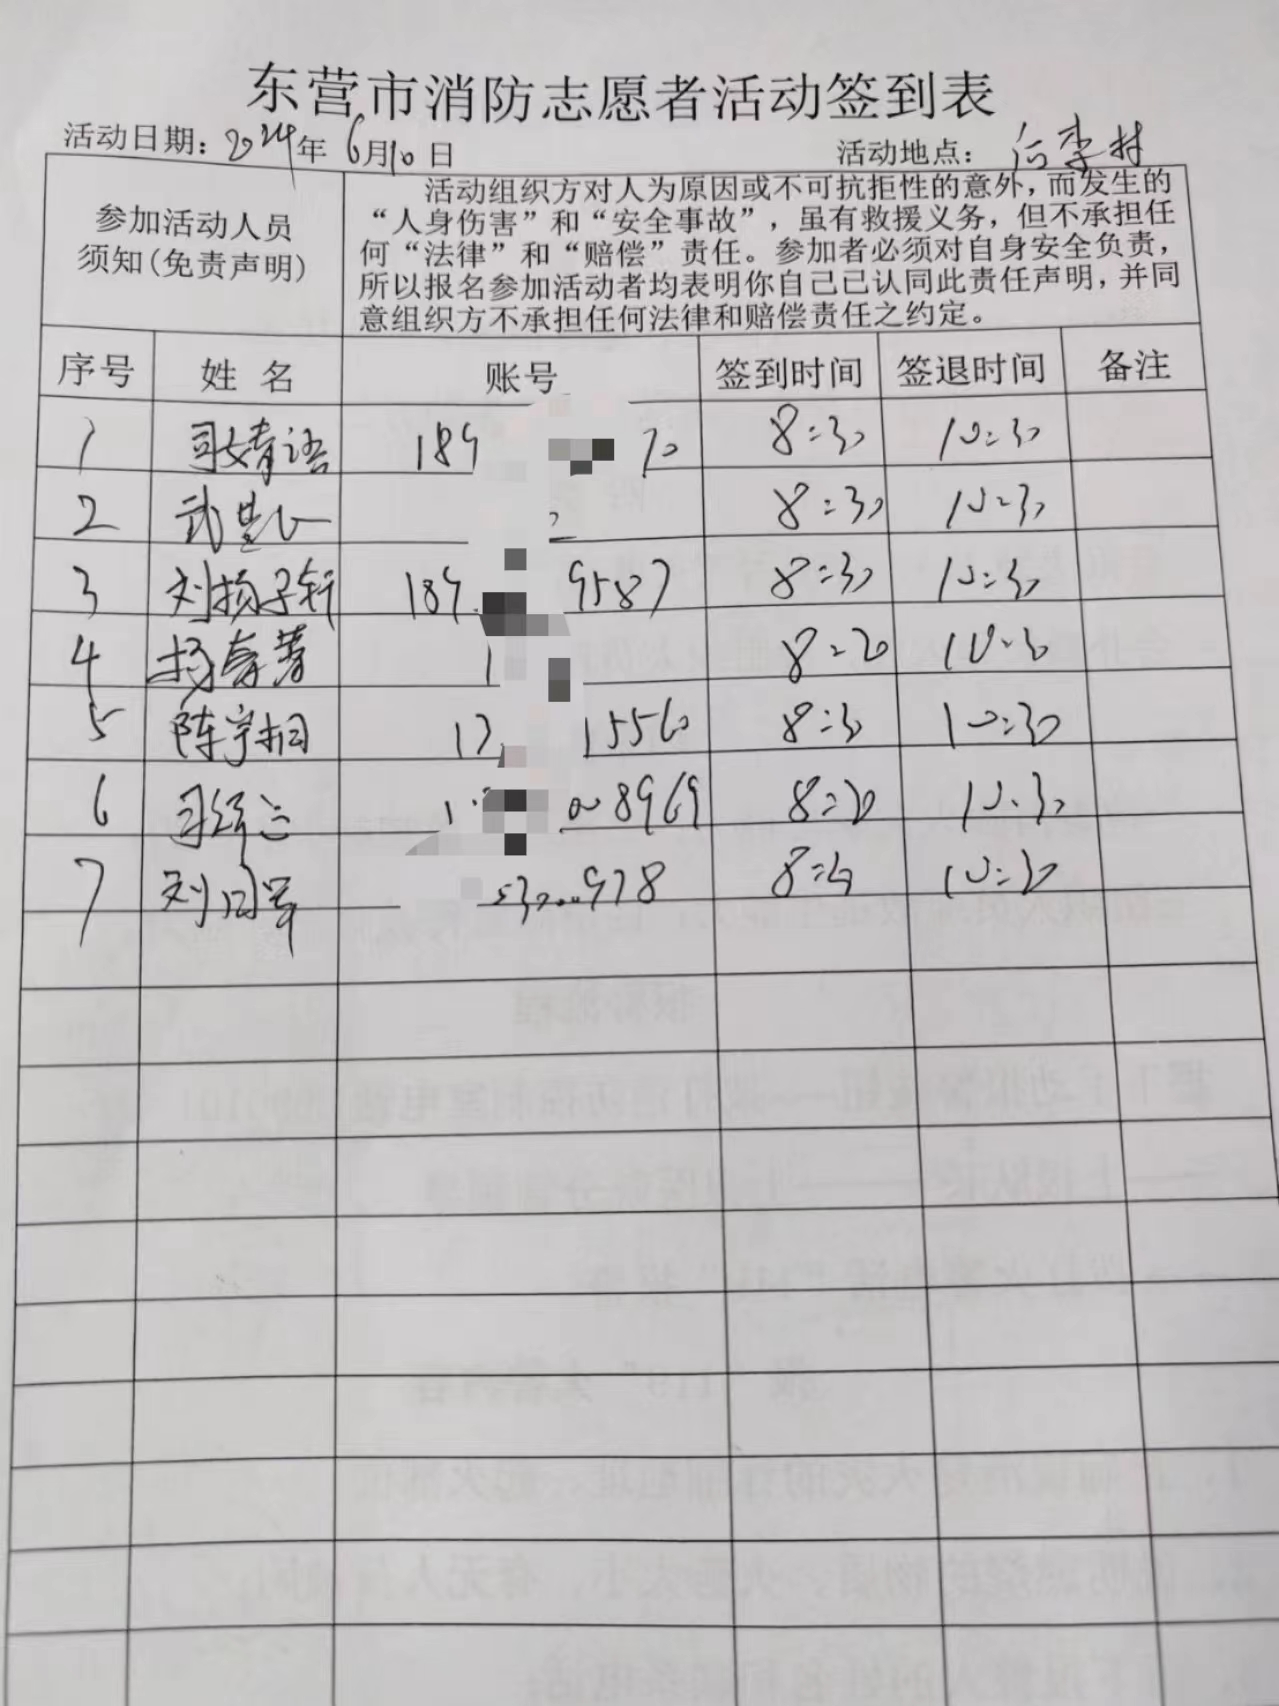 东营市消防志愿者活动签到表
活动日期：2024年6月10日 活动地点：后李村
参加活动人员
须知(免责声明)
活动组织方对人为原因或不可抗拒性的意外，而发生的
“人身伤害”和“安全事故”，虽有救援义务，但不承担任
何“法律”和“赔偿”责任。参加者必须对自身安全负责，
所以报名参加活动者均表明你自己已认同此责任声明，并同
意组织方不承担任何法律和赔偿责任之约定。
序号 姓名 账号 签到时间 签退时间 备注
1 司婧语 189 70 8:30 10:30
2 8:30 10:30
3 刘杨子轩 189 9587 8:30 10:30
4 1 8:20 10:30
5 陈宇桐 1556 8:30 10:30
6 8969 8:20 10:30
7 978 10:30